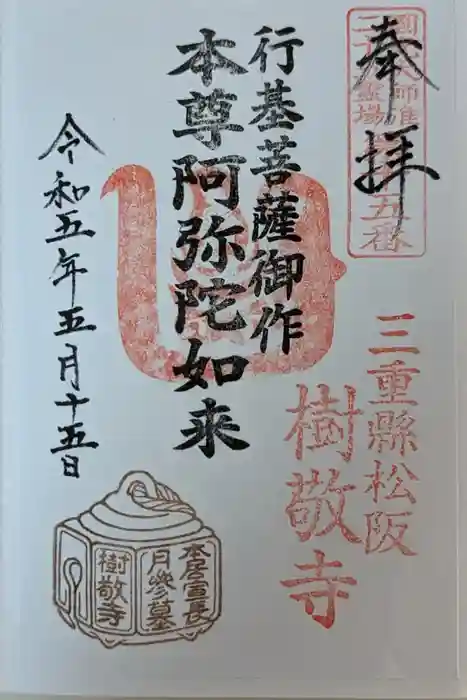 奉拝
五番
行基菩薩御作
本尊阿弥陀如来
令和五年五月十五日
三重縣松阪
樹敬寺
本居宣長
月参墓
樹敬寺